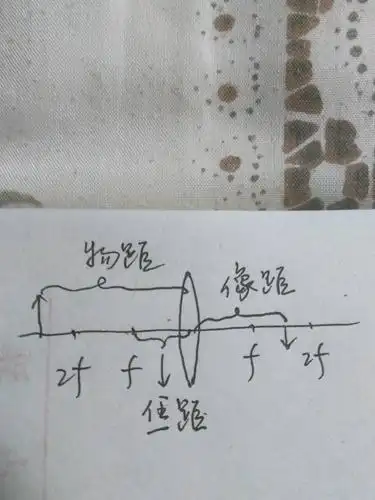 物距
像距
2f f f 2f
焦距